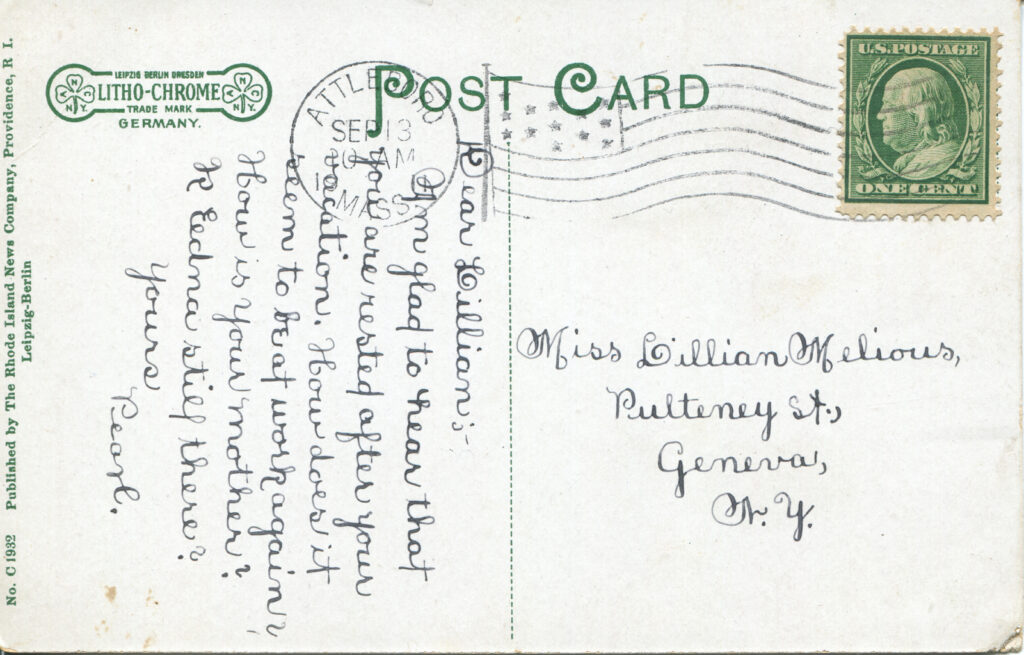 POST CARD
LEIPZIG BERLIN DRESDEN
LITHO-CHROME
TRADE MARK
GERMANY.
N Y C
N Y C
ATTLEBORO
SEP 13
AM
MASS.
U.S. POSTAGE
ONE CENT
Dear Lillian:-
Am glad to hear that
you are rested after your
vacation. How does it
seem to be at work again?
How is your mother?
Is Eedna still there?
Yours
Pearl.
Miss Lillian Melious,
Pulteney St.,
Geneva,
N. Y.
No. C 1932 Published by The Rhode Island News Company, Providence, R I.
Leipzig-Berlin